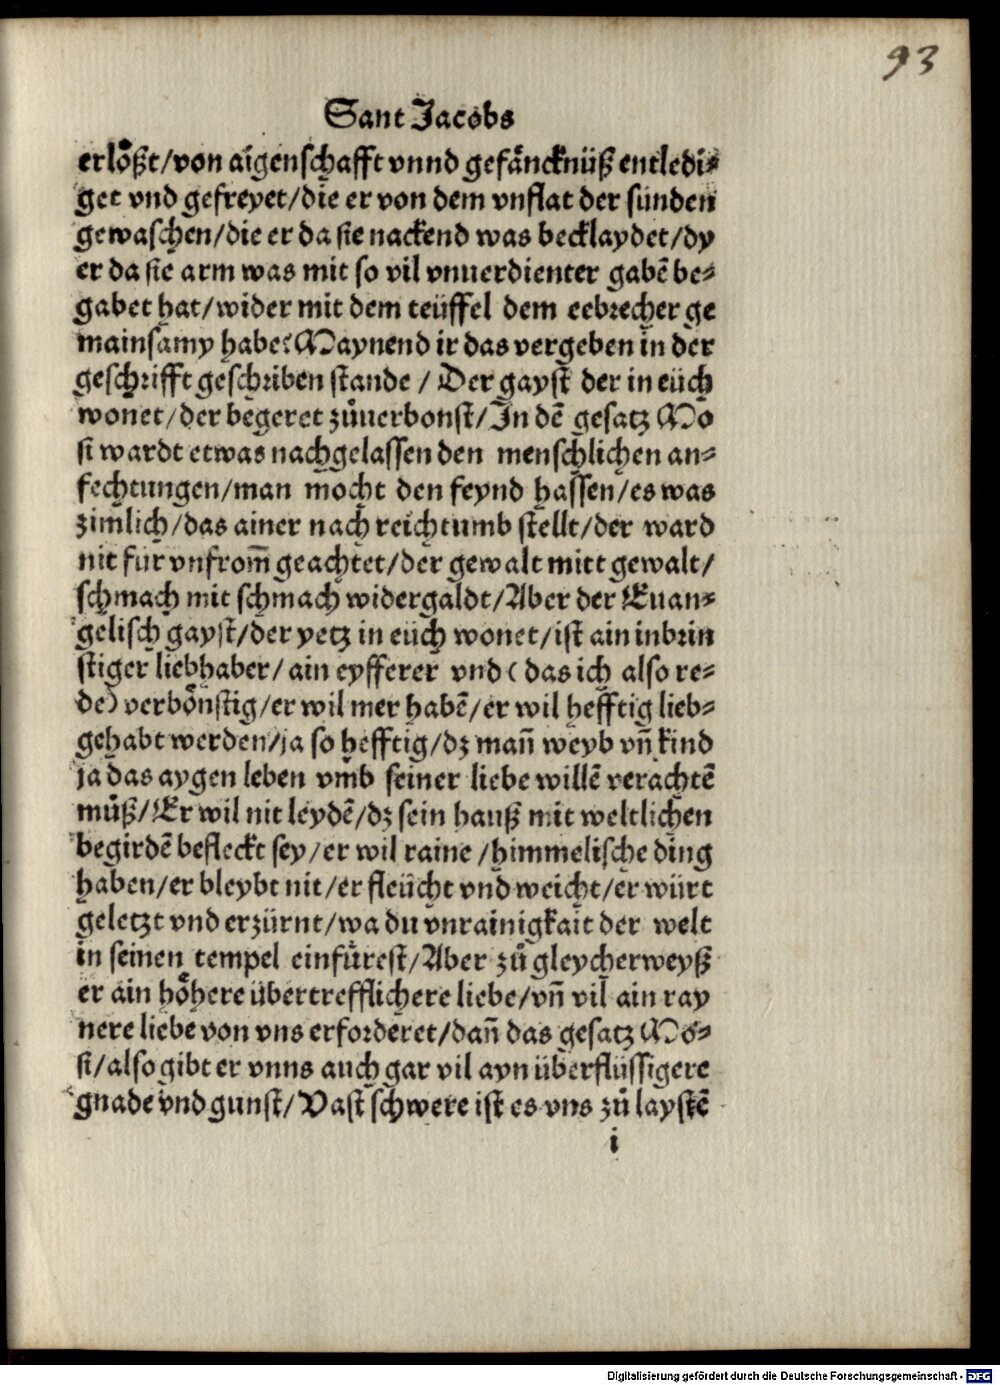 93
Sant Jacobs
erlößt/von aigenschafft vnnd gefäncknüß entledi⸗
get vnd gefreyet/die er von dem vnflat der sünden
gewaschen/die er da sie nackend was becklaydet/dy
er da sie arm was mit so vil vnuerdienter gabē be⸗
gabet hat/wider mit dem teüffel dem eebrecher ge
mainsamy habe? Maynend ir das vergeben in der
geschrifft geschriben stande / Der gayst der in eüch
wonet/der begeret zůuerbonst/In dē gesatz Mo
si wardt etwas nachgelassen den menschlichen an⸗
fechtungen/man mocht den feynd hassen/es was
zimlich/das ainer nach reichtumb stellt/der ward
nit für vnfrom̄ geachtet/der gewalt mitt gewalt/
schmach mit schmach widergaldt/Aber der Euan⸗
gelisch gayst/der yetz in euch wonet/ist ain inbrin
stiger liebhaber/ ain eyfferer vnd (das ich also re⸗
de) verbönstig/er wil mer habē/er wil hefftig lieb⸗
gehabt werden/ja so hefftig/dz man̄ weyb vn̄ kind
ja das aygen leben vmb seiner liebe willē verachtē
můß/Er wil nit leydē/dz sein hauß mit weltlichen
begirdē befleckt sey/er wil raine /himmelische ding
haben/er bleybt nit/er fleücht vnd weicht/er würt
geletzt vnd erzürnt/wa du vnrainigkait der welt
in seinen tempel einfürest/Aber zů gleycherweyß
er ain höhere übertrefflichere liebe/vn̄ vil ain ray
nere liebe von vns erforderet/dan̄ das gesatz Mo⸗
si/also gibt er vnns auch gar vil ayn überflüssigere
gnade vnd gunst/Vast schwere ist es vns zů laystē
i
Digitalisierung gefördert durch die Deutsche Forschungsgemeinschaft - DFG